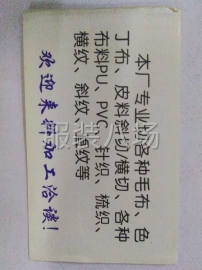 本厂专业切各种毛布、色
丁布、皮料斜切/横切、各种
布料PU、PVC、针织、梳织、
横纹、斜纹、直纹等
欢迎来料加工洽谈!